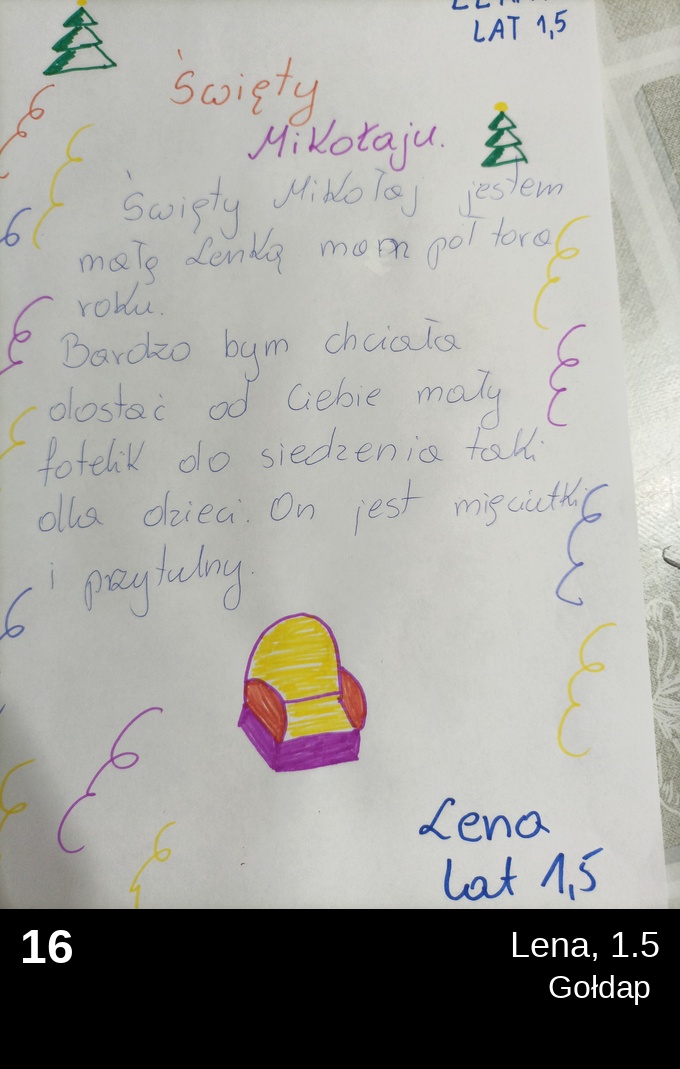 LAT 1,5
Święty
Mikołaju.
Święty Mikołaj jestem
małą Lenką mam pół tora
roku.
Bardzo bym chciała
dostać od Ciebie mały
fotelik do siedzenia taki
dla dzieci. On jest mięciutki
i przytulny.
Lena
lat 1,5
16
Lena, 1.5
Gołdap